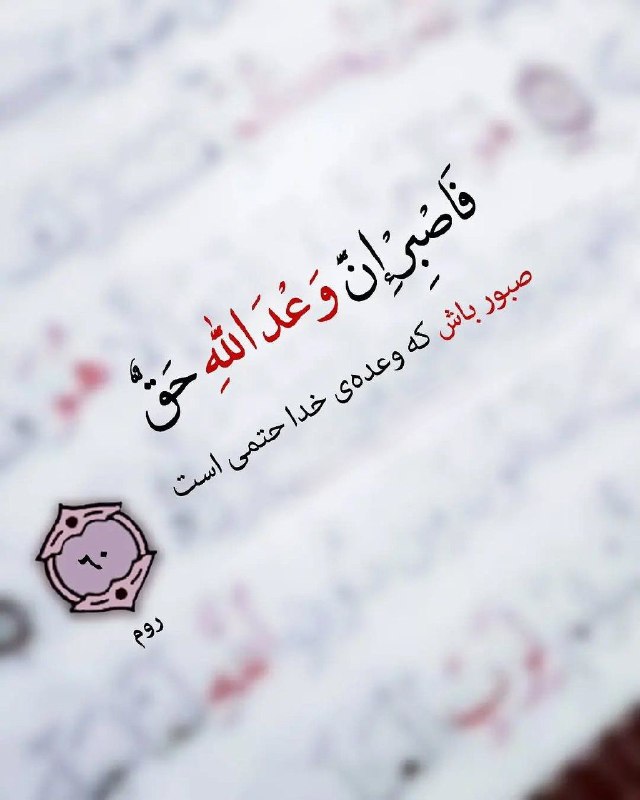 فَاصْبِرْ إِنَّ وَعْدَ اللّٰهِ حَقٌّ
صبور باش که وعده‌ی خدا حتمی است
٦٠
روم